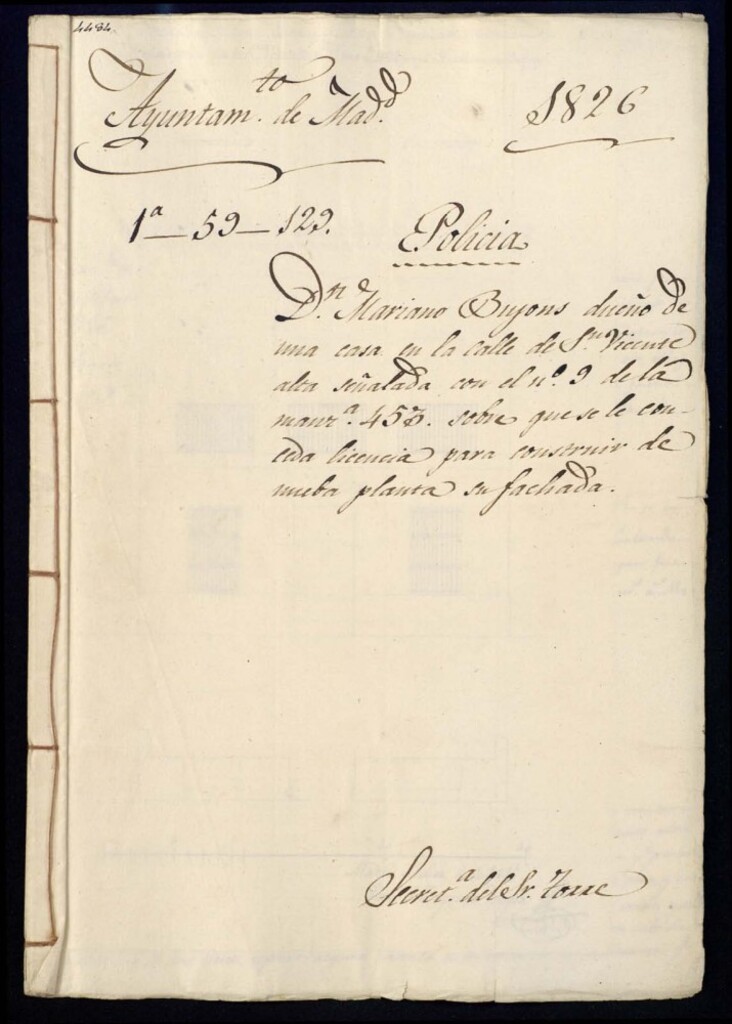 4484.
Ayuntam.to de Mad.d 1826
1a — 59 — 129.
Policia
D.n Mariano Bujons dueño de
una casa en la calle de S.n Vicente
alta señalada con el n.o 9 de la
manz.a 457. sobre que se le con-
ceda licencia para construir de
nueba planta su fachada.
Secret.a del Sr. Torre